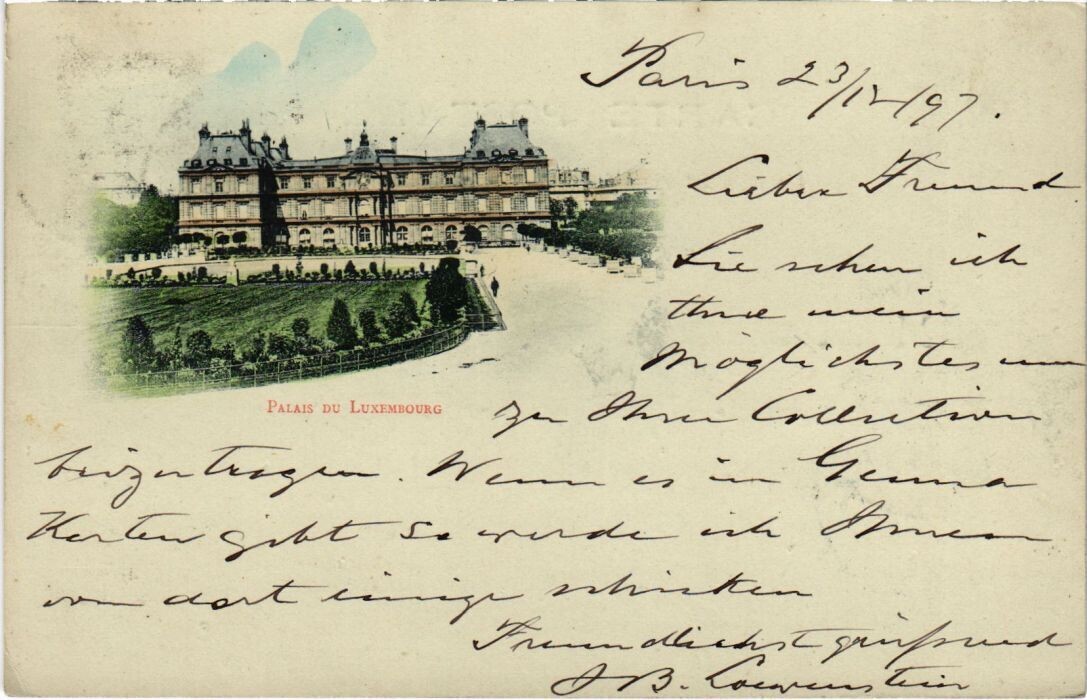 Paris 23/12/97.
Lieber Freund
Sie sehen ich
thue mein
Möglichstes um
zu Ihrer Collection
beizutragen. Wenn es in Genua
Karten gibt so werde ich Ihnen
von dort einige schicken
Freundlichst grüßend
JB. Loewenstein
PALAIS DU LUXEMBOURG